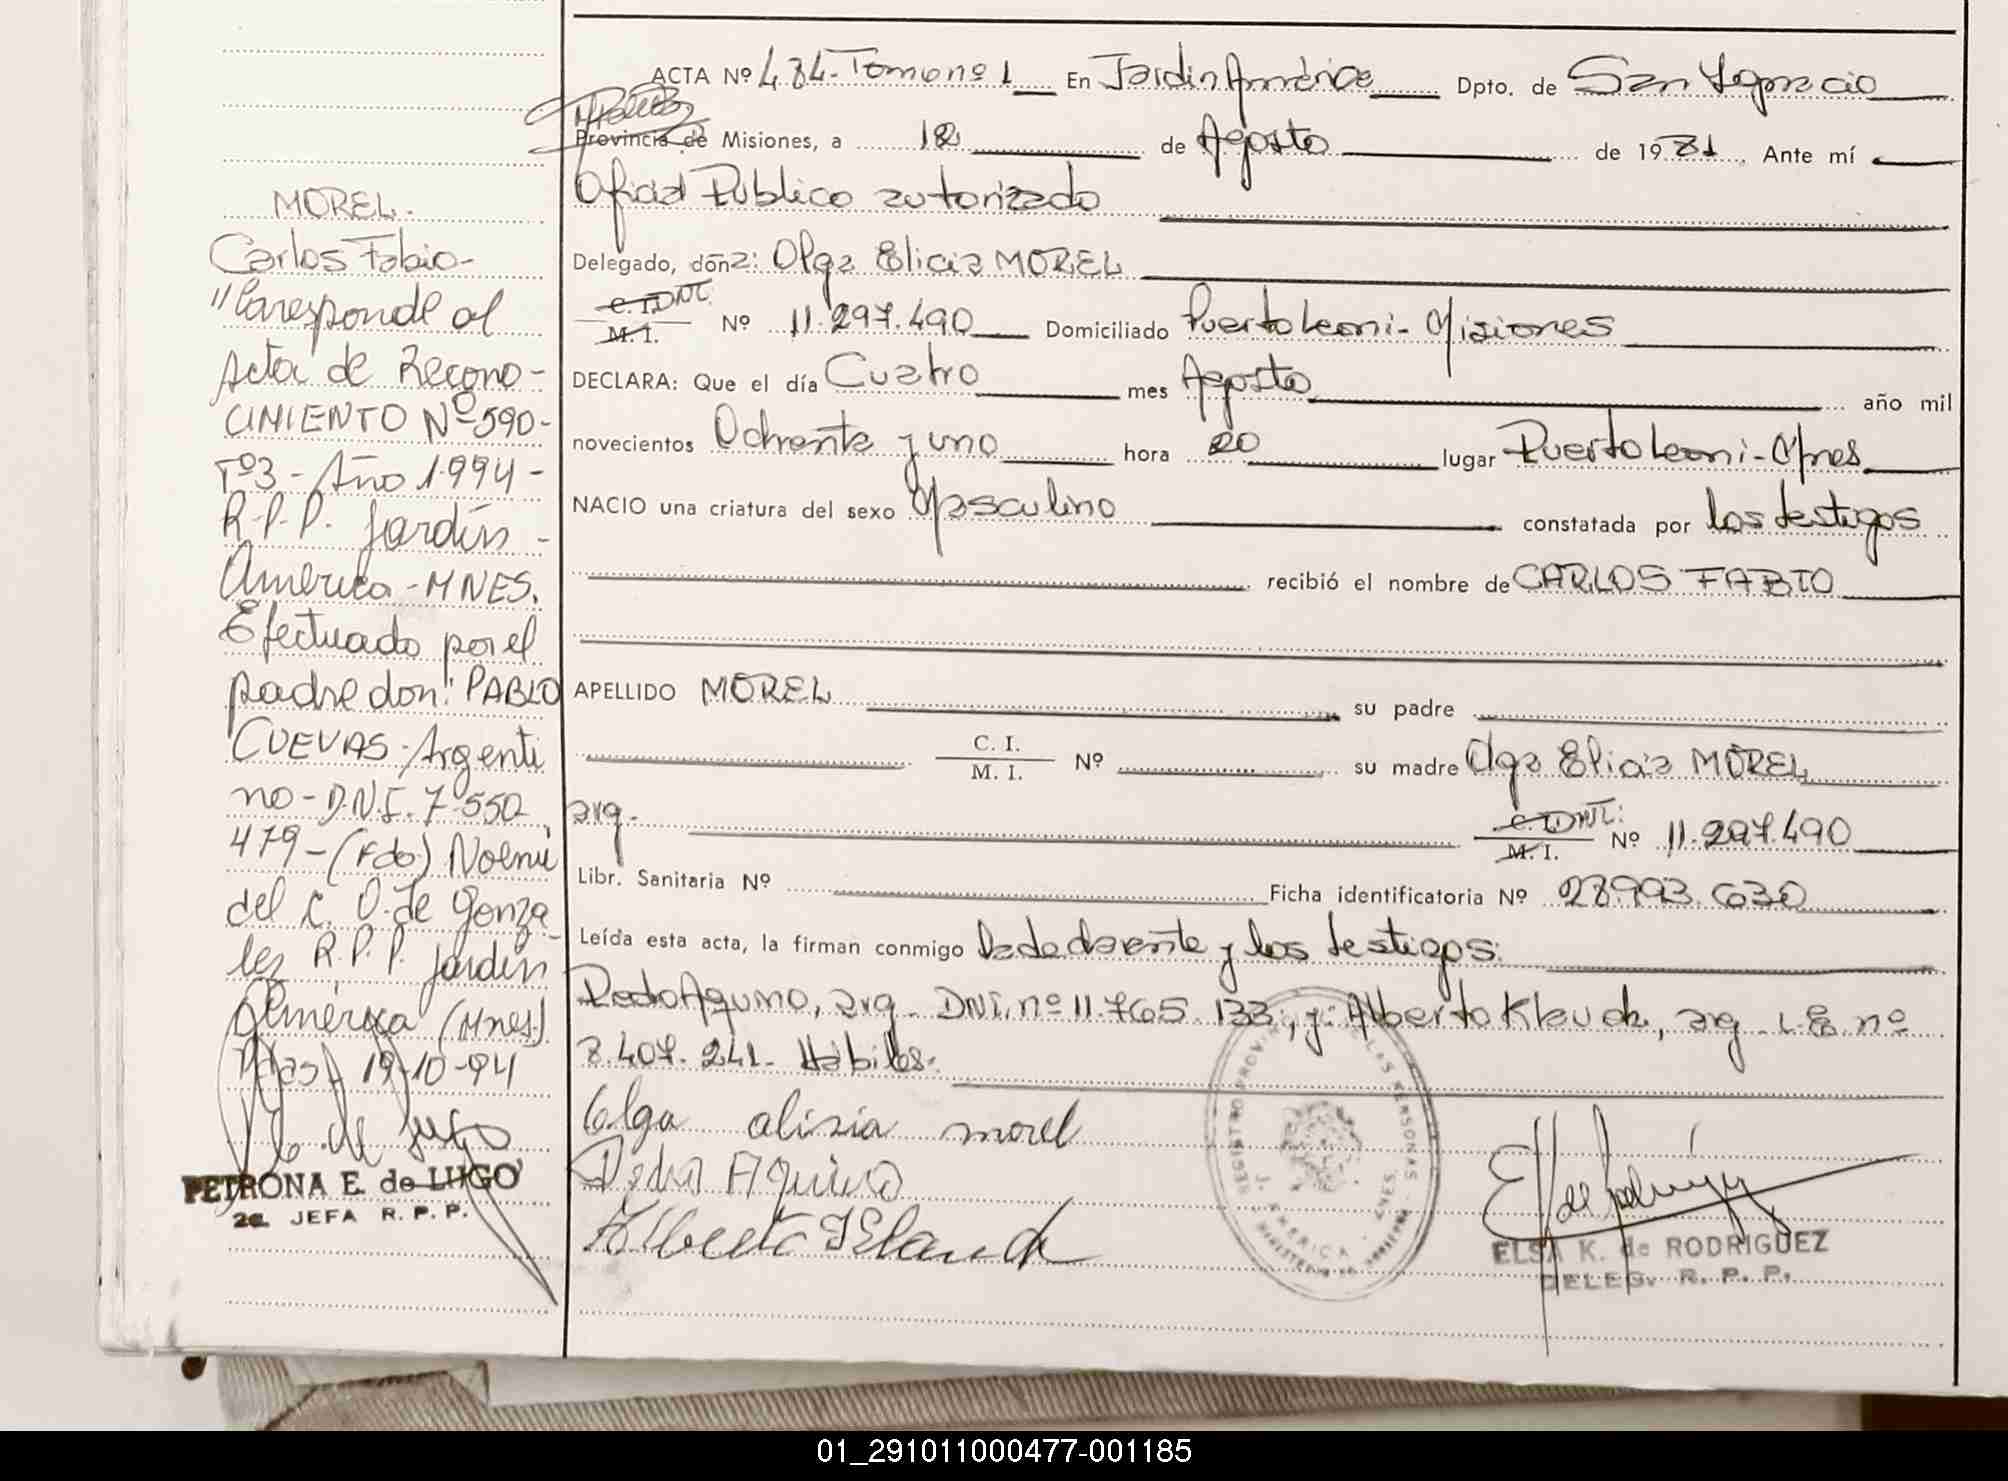 MOREL.
Carlos Fabio-
"Corresponde al
Acta de Recono-
CIMIENTO Nº 590-
Tº3 - Año 1.994 -
R.P.P. Jardín -
América - MNES.
Efectuado por el
padre don: PABLO
CUEVAS - Argenti
no - D.N.I. 7.550
479 - (Fdo) Noemí
del C. O. de Gonza
lez R.P.P. Jardín
América (Mnes.)
19-10-94
PETRONA E. de LUGO
2a. JEFA R. P. P.
ACTA Nº 484-Tomo nº 1 En Jardin América Dpto. de San Ignacio
Provincia de Misiones, a 12 de Agosto de 1981. Ante mí
Oficial Público autorizado
Delegado, doña: Olga Elicia MOREL
C. I. DNI.
M. I. Nº 11.297.490 Domiciliado Puerto Leoni - Misiones
DECLARA: Que el día Cuatro mes Agosto año mil
novecientos Ochenta y uno hora 20 lugar Puerto Leoni - Mnes
NACIO una criatura del sexo Masculino constatada por los testigos
recibió el nombre de CARLOS FABIO
APELLIDO MOREL su padre
C. I.
M. I. Nº su madre Olga Elicia MOREL
arg.
C. I. DNI:
M. I. Nº 11.297.490
Libr. Sanitaria Nº Ficha identificatoria Nº 28.993.630
Leída esta acta, la firman conmigo la declarante y los testigos:
Pedro Aquino, arg. DNI. nº 11.765.133; y: Alberto Klauck, arg. L.E. nº
8.407.241. Hábiles.
Olga alisia morel
Pedro Aquino
Alberto Klauck
REGISTRO PROVINCIAL DE LAS PERSONAS
J. AMERICA - MNES.
ELSA K. de RODRIGUEZ
DELEG. R. P. P.
01_291011000477-001185